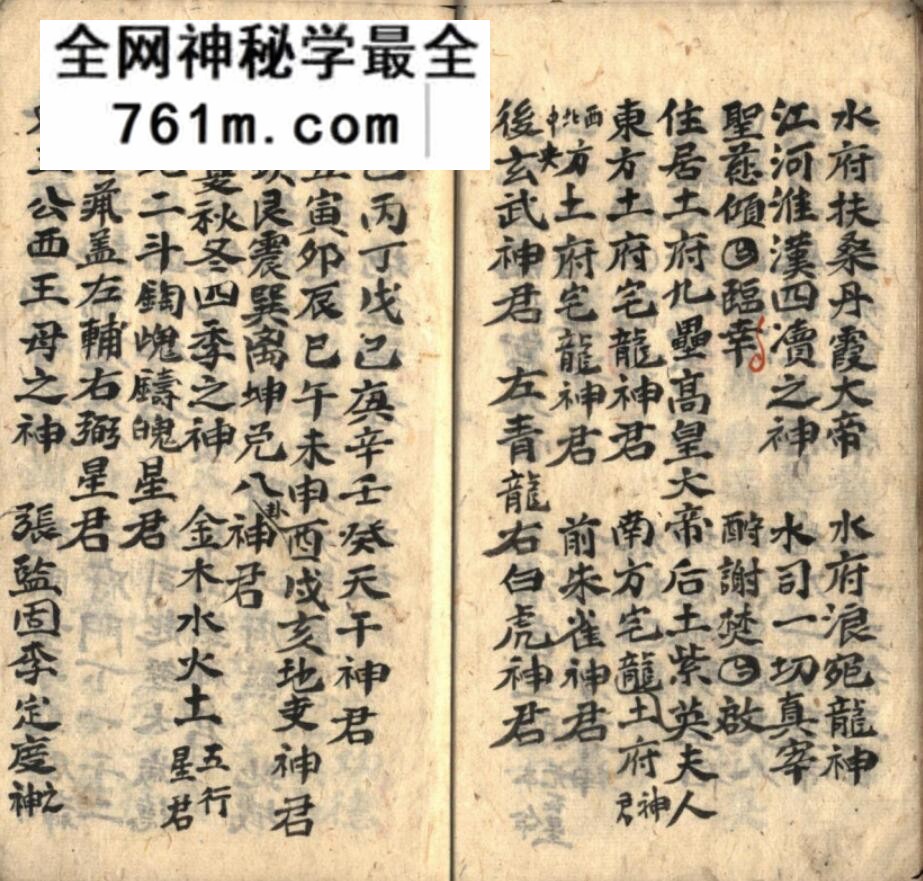 全网神秘学最全
761m.com
水府扶桑丹霞大帝 水府浪宛龍神
江河淮漢四瀆之神 水司一切真宰
聖慈傾囬臨幸 酧謝焚囬啟
住居土府九壘髙皇大帝后土紫英夫人
東方土府宅龍神君 南方宅龍土府神君
西北中央方土府宅龍神君 前朱雀神君
後玄武神君 左青龍右白虎神君
丙丁戊己庚辛壬癸天干神君
寅卯辰巳午未申酉戌亥地支神君
艮震巽离坤兑八卦神君
秋冬四季之神 金木水火土五行星君
二斗魁星君
盖左輔右弼星君
公西王母之神 張監固李定度之神